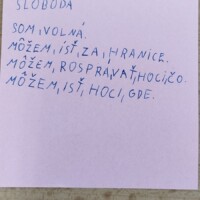 SLOBODA
SOM, VOLNÁ.
MÔŽEM, ÍSŤ, ZA, HRANICE.
MÔŽEM, ROSPRAVAŤ, HOCI, ČO.
MÔŽEM, ISŤ, HOCI, GDE.